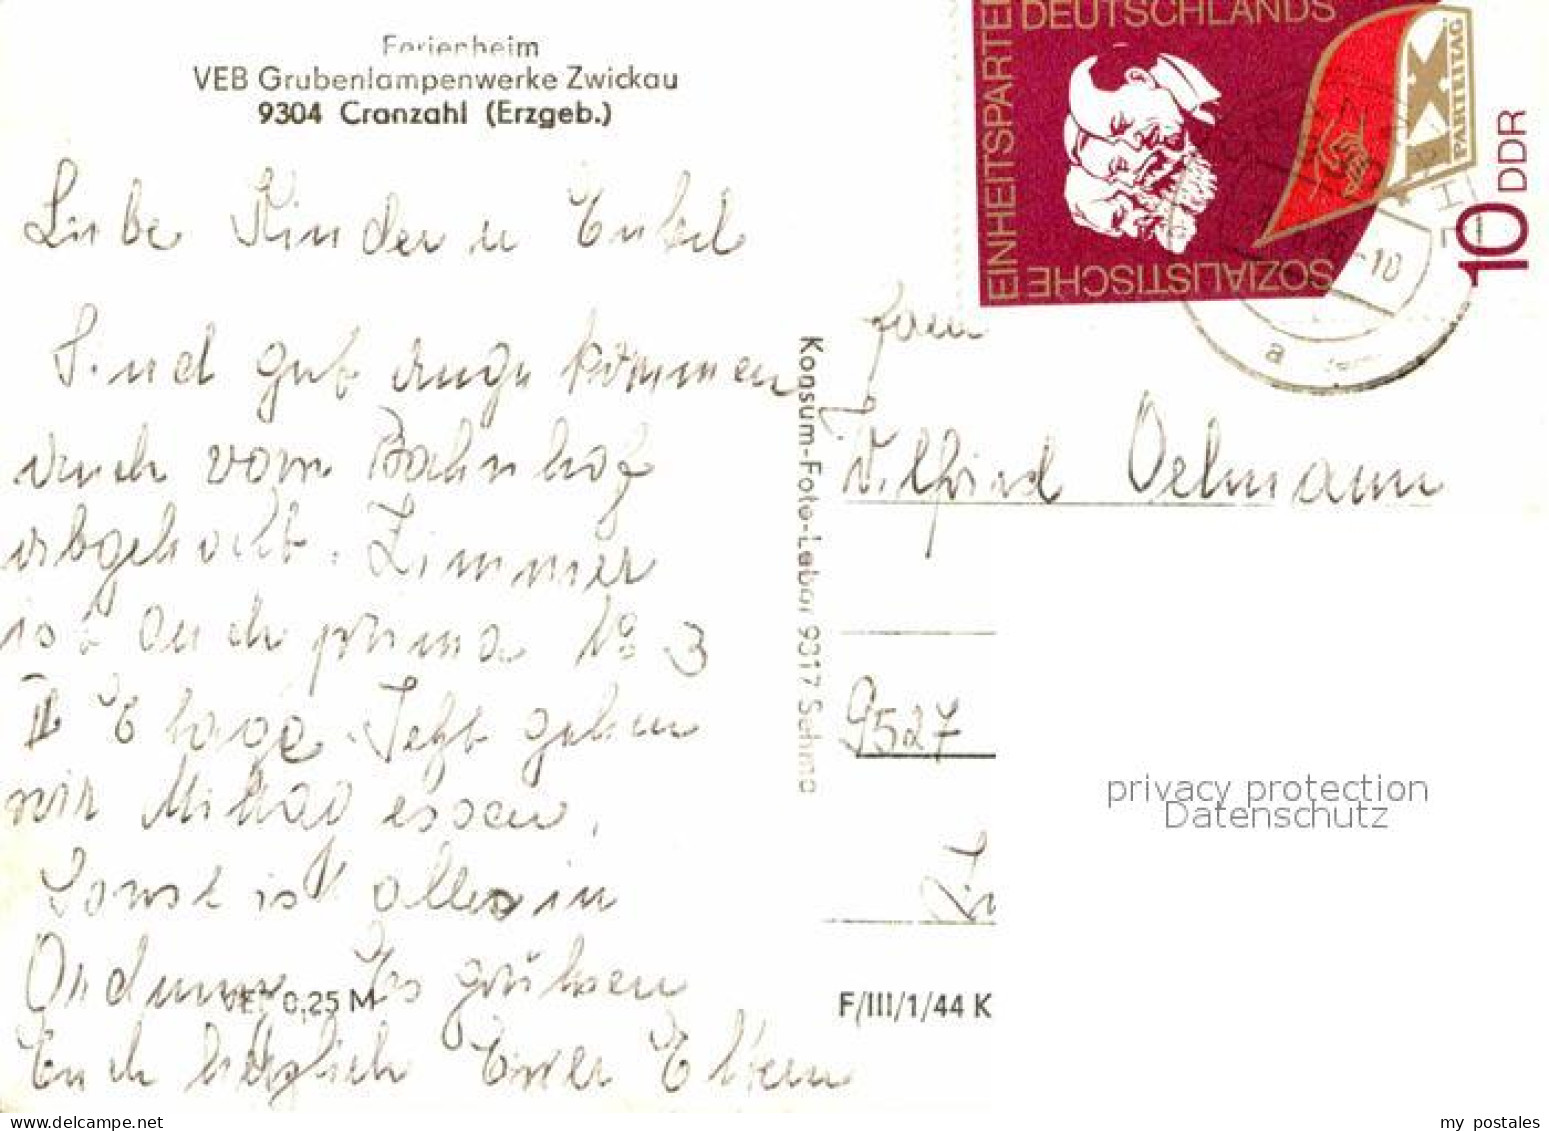 Ferienheim
VEB Grubenlampenwerke Zwickau
9304 Cranzahl (Erzgeb.)
Liebe Kinder u Enkel
Sind gut angekommen
auch vom Bahnhof
abgehohlt. Zimmer
ist auch prima No 3
II Etage. Jetzt gehen
wir Mittag essen,
Sonst ist alles in
Ordnung Es grüßen
Euch herzlich Eure Eltern
VEP 0,25 M
Konsum-Foto-Labor 9317 Sehma
DEUTSCHLANDS
EINHEITSPARTEI
SOZIALISTISCHE
IX
PARTEITAG
10 DDR
-10
a
Fam
Wilfried Oelmann
9527
F/III/1/44 K
privacy protection
Datenschutz
my postales